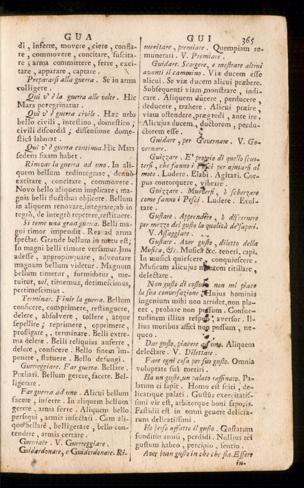 GUA
GUI
365
di, inferre, movere, ciere, consta-
re, commovere, concitare, suscita-
re; arma committere, ferre, exci-
tare, apparare, captare.
Prepararsi alla guerra. Se in arma
colligere.
Qui v'è la guerra alle volte. Hic
Mars peregrinatur.
Qui v'è guerra civile. Hæc urbs
bello civili, intestino, domestico,
civili discordiâ, dissensione dome-
sticâ laborat.
Qui v'è guerra continua. Hic Mars
sedem fixam habet.
Rinovar la guerra ad uno. In ali-
quem bellum redintegrare, denuò
excitare, concitare, commovere.
Novo bello aliquem implicare; ma-
gnis belli fluctibus objicere. Bellum
in aliquem renovare, integrare, ab in-
tegrò, de integrò repetere, restituere.
Si teme una gran guerra. Belli ma-
gni timor impendit. Res ad arma
spectat. Grande bellum in metu est;
In magni belli timore versamur. Jam
adesse, appropinquare, adventare
magnum bellum videtur. Magnum
bellum timetur, formidatur, me-
tuitur, vel, timemus, detimescimus,
pertimescimus.
Terminar. Finir la guerra. Bellum
conficere, comprimere, restinguere,
delere, absolvere, tollere, atque
sepellire; reprimere, opprimere,
profligare, terminare. Belli extre-
ma delere. Belli reliquias auferre,
delere, conficere. Bello finem im-
ponere, statuere. Bello defungi.
Guerreggiare. Far guerra. Bellare.
Præliari. Bellum gerere, facere. Bel-
ligerare.
Far guerra ad uno. Alicui bellum
facere, inferre. In aliquem bellum
gerere, arma ferre. Aliquem bello
persequi, armis infectari. Cum ali-
quo bellare, belligerare, bello con-
tendere, armis certare.
Guerriare. V. Guerreggiare.
Guidardonare, e Guiderdonare. Ri-
meritare, premiare. Quempiam re-
munerari. V. Premiare.
Guidare. Scorgere, e mostrare altrui
avanti il cammino. Viæ ducem esse
alicui. Se viæ ducem alicui præbere.
Subsequenti viam monstrare, indi-
care. Aliquem ducere, perducere,
deducere, trahere. Alicui præire,
viam ostendere, prægredi, ante ire.
Alicujus ducem, ductorem, perdu-
ctorem esse.
Guidare, per Governare. V. Go-
vernare.
Guizzare. E' proprio di quello scuo-
tersi, che fanno i Pesci per ajutarsi al
moto. Ludere. Elabi. Agitari. Cor-
pus contorquere, vibrare.
Guizzare. Muoversi, & scherzare
come fanno i Pesci. Ludere. Exul-
tare.
Gustare. Apprendere, & discernere
per mezzo del gusto la qualità de' sapori.
V. Assaggiare.
Gustare. Aver gusto, diletto della
Musica, &c. Musicâ &c. teneri, capi.
In musicâ quiescere, conquiescere.
Musicam alicujus mentem titillare,
delectare.
Non gusto di costui, non mi piace
la sua conversazione. Hujus hominis
ingenium mihi non arridet, non pla-
cet, probare non possum. Consue-
tudinem illius respuo, aversor. Il-
lius moribus affici non possum, ne-
queo.
Dar gusto, piacere ad uno. Aliquem
delectare. V. Dilettare.
Fare ogni cosa per suo gusto. Omnia
voluptate sua metiri.
Hà un gusto, un palato raffinato. Pa-
latum ei sapit. Homo est sciti, de-
licatique palati. Gustûs exercitatis-
simi vir est, arbiterque boni saporis.
Fastidit est in omni genere delicia-
rum delicatissimi.
Ho perso affatto il gusto. Gustatum
funditùs amisi, perdidi. Nullum rei
gustum habeo, percipio, sentio.
Aver buon gusto in che che sia. Essere
in-